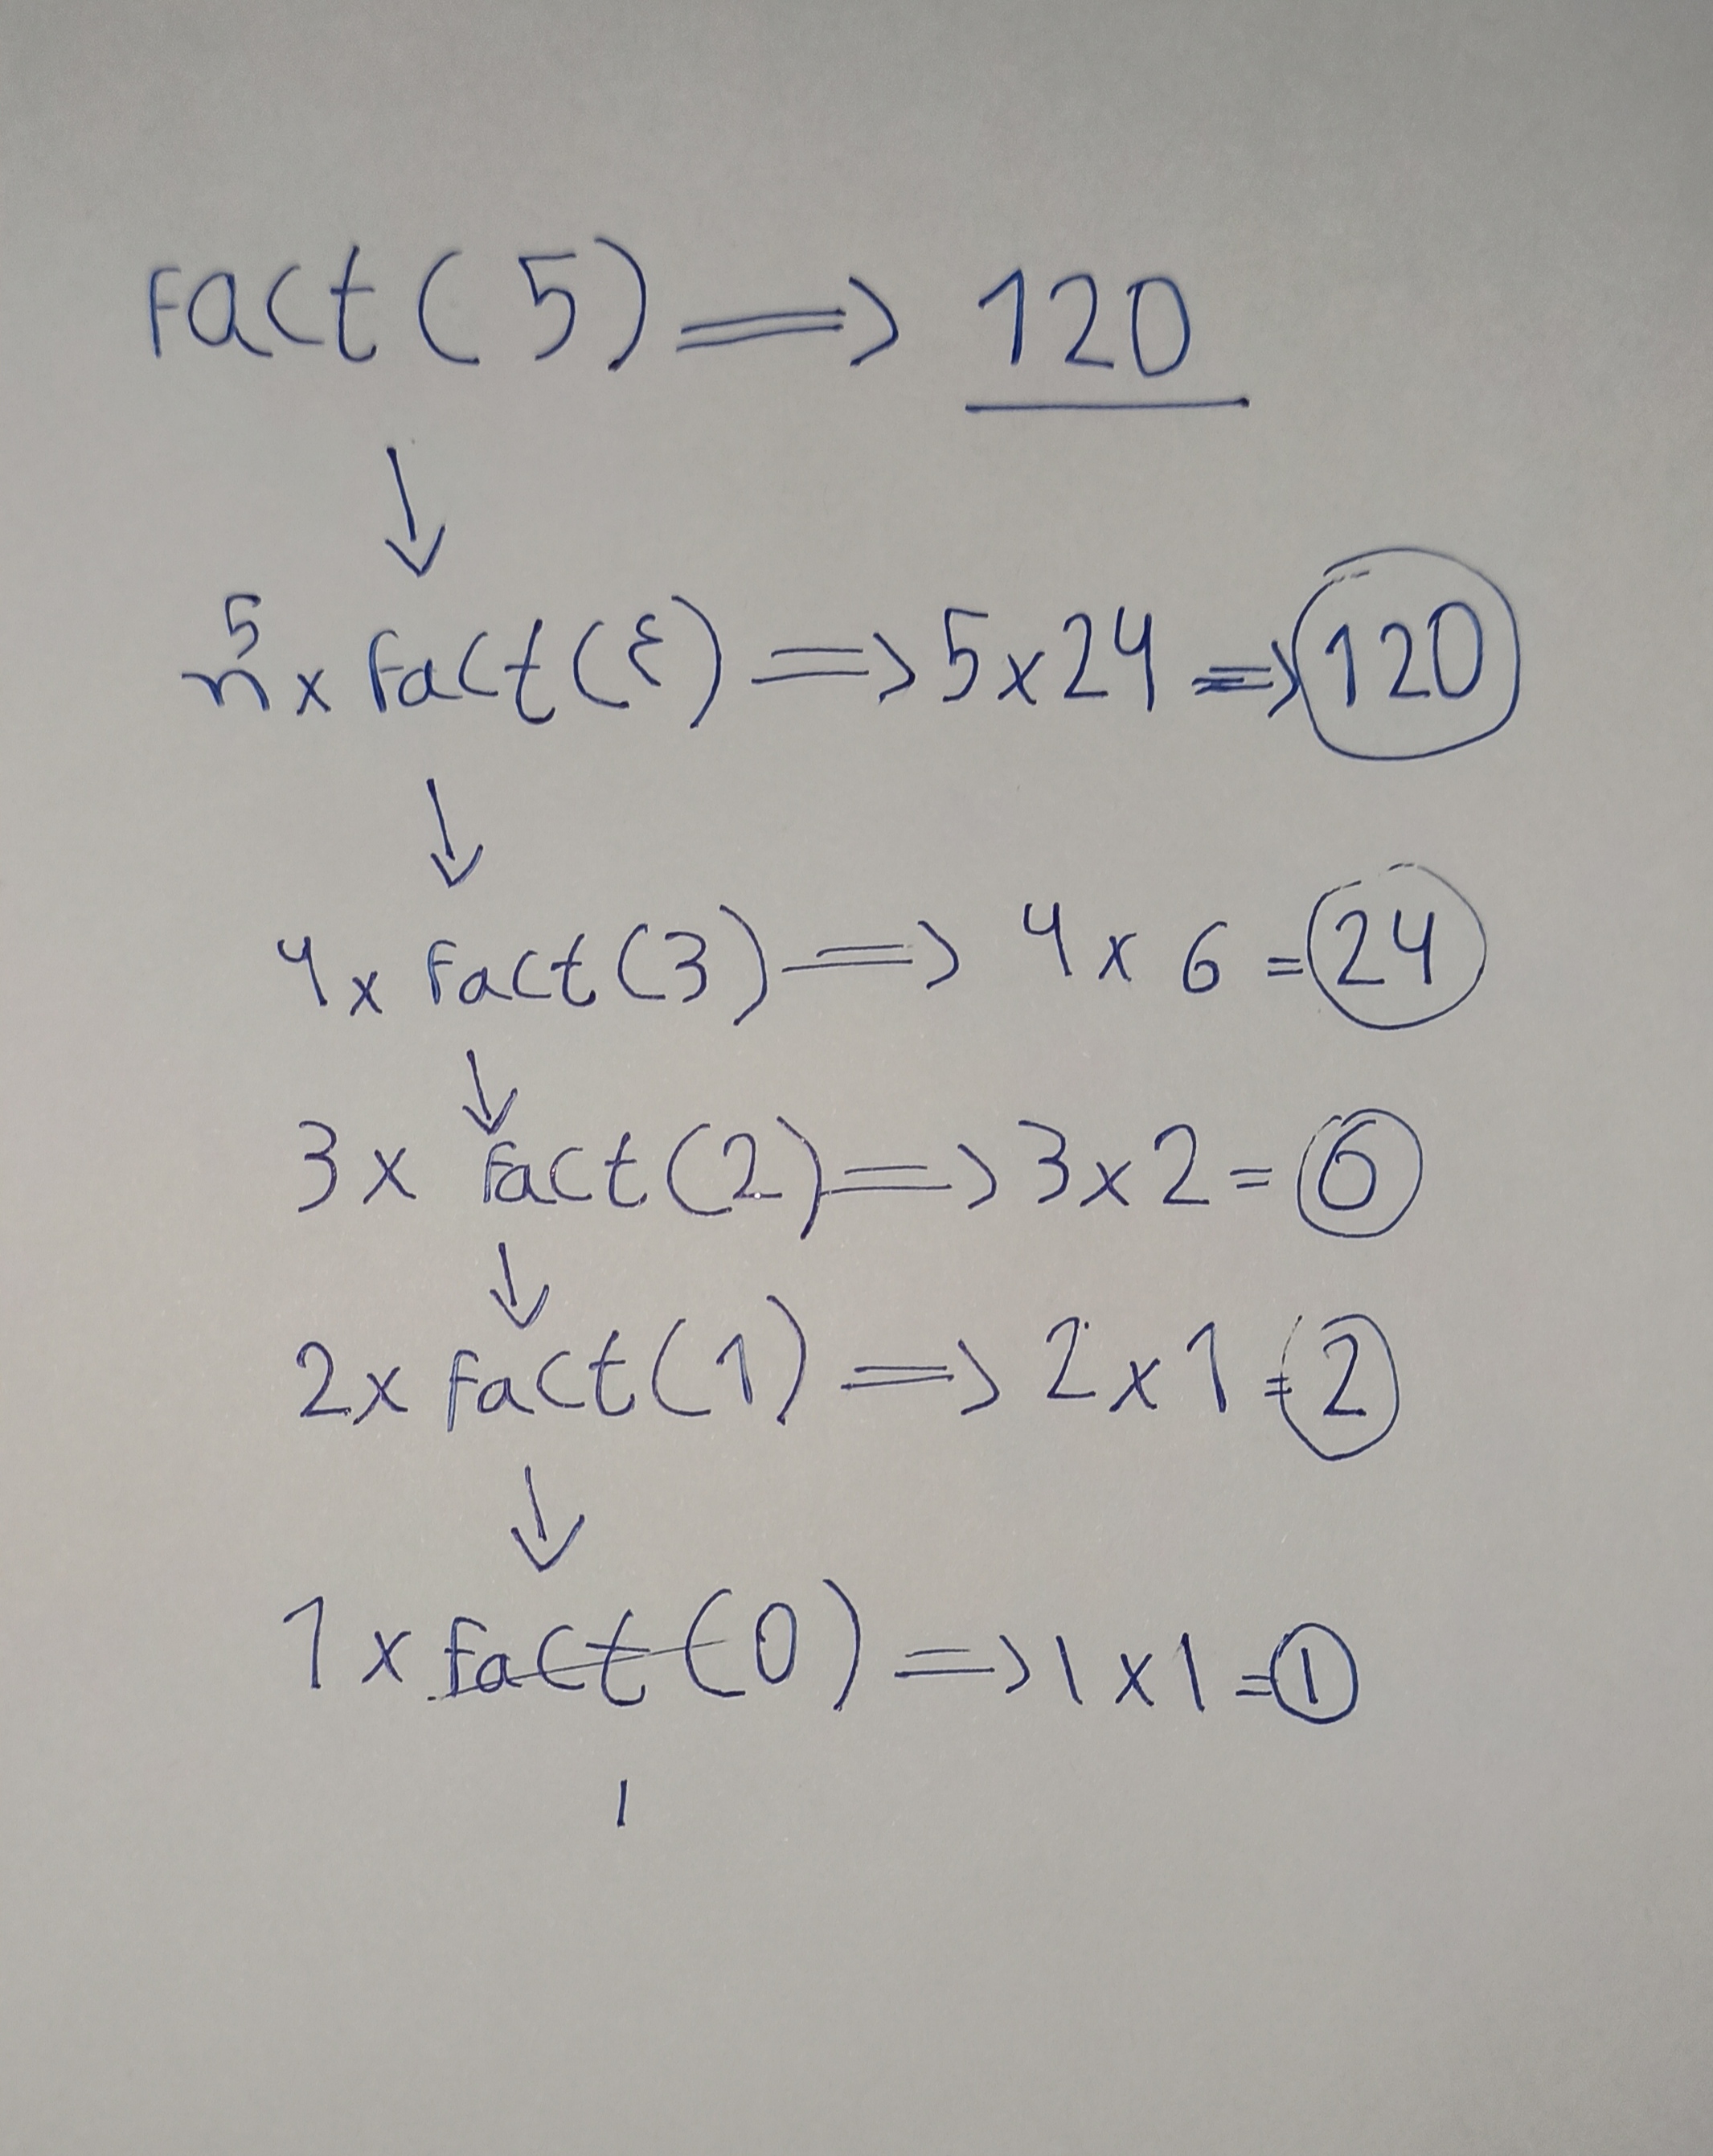 Fact(5) => 120
5
n x Fact(٤) => 5x24 => 120
4x Fact(3) => 4 x 6 = 24
3x Fact(2) => 3x2 = 6
2x Fact(1) => 2x1 = 2
1x Fact(0) => 1x1 = 1
1